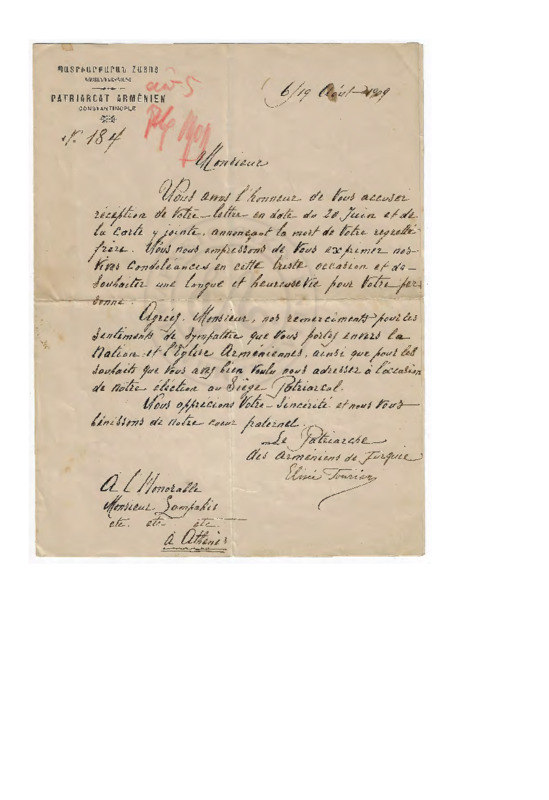 ՊԱՏՐԻԱՐՔԱՐԱՆ ՀԱՅՈՑ
PATRIARCAT ARMÉNIEN
CONSTANTINOPLE
No. 184
6/19 Août 1909
Monsieur
Nous avons l'honneur de Vous accuser
réception de Votre lettre en date du 20 Juin et de
la Carte y jointe, annonçant la mort de Votre regretté
frère. Nous nous empressons de Vous exprimer nos
vives Condoléances en cette triste occasion et de
Souhaiter une longue et heureuse vie pour Votre per
sonne.
Agréez, Monsieur, nos remerciments pour les
Sentiments de Sympathie que Vous portez envers la
Nation et l'Eglise Arméniennes, ainsi que pour les
souhaits que Vous avez bien voulu nous adresser à l'occasion
de notre élection au Siège Patriarcal.
Nous apprécions Votre Sincérité et nous Vous
bénissons de notre coeur fraternel.
Le Patriarche
des Arméniens de Turquie
Elisée Tourian
A l'Honorable
Monsieur Lampakis
etc. etc. etc.
à Athènes